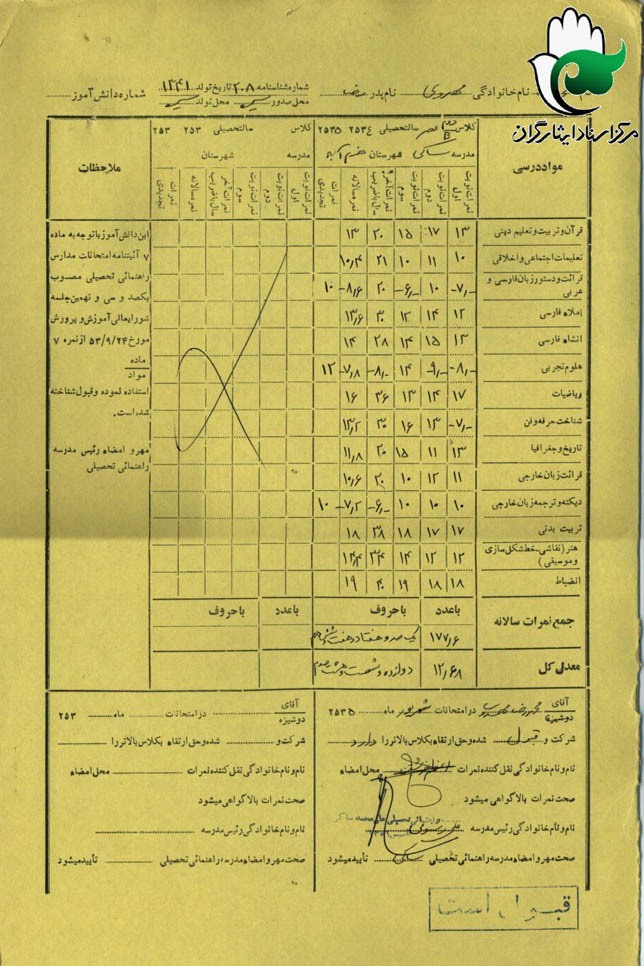 مرکز اسناد ایثارگران
نام خانوادگی نام پدر شماره شناسنامه ۲۰۸ تاریخ تولد ۱۳۴۱ شماره دانش آموز
محل صدور محل تولد
مواد درسی
کلاس دوم سالتحصیلی ۲۵۳۴ ۲۵۳۵
مدرسه شهرستان
نمرات نوبت اول
نمرات نوبت دوم
نمرات نوبت سوم
نمرات آخر سال با ضریب
نمره سالانه
نمرات تجدیدی
کلاس سالتحصیلی ۲۵۳ ۲۵۳
مدرسه شهرستان
نمرات نوبت اول
نمرات نوبت دوم
نمرات نوبت سوم
نمرات آخر سال با ضریب
نمره سالانه
نمرات تجدیدی
ملاحظات
قرآن و تربیت و تعلیم دینی ۱۳ ۱۷ ۱۵ ۲۰ ۱۳
تعلیمات اجتماعی و اخلاقی ۱۰ ۱۱ ۱۰ ۲۱ ۱۰٫۴
قرائت و دستور زبان فارسی و عربی -۷- ۱۰ -۶- ۲۰ -۸٫۶ ۱۰
املاء فارسی ۱۲ ۱۴ ۱۲ ۳۰ ۱۳٫۶
انشاء فارسی ۱۳ ۱۵ ۱۴ ۲۸ ۱۴
علوم تجربی -۸- -۹- ۱۴ -۸- -۷٫۸ ۱۲
ریاضیات ۱۷ ۱۴ ۱۳ ۳۶ ۱۶
شناخت حرفه و فن -۷- ۱۳ ۱۶ ۳۰ ۱۳٫۲
تاریخ و جغرافیا ۱۳ ۱۱ ۱۵ ۲۰ ۱۱٫۸
قرائت زبان خارجی ۱۱ ۱۲ ۱۰ ۲۰ ۱۰٫۶
دیکته و ترجمه زبان خارجی ۱۰ ۱۰ ۱۰ -۶- -۷٫۲ ۱۰
تربیت بدنی ۱۷ ۱۷ ۱۸ ۳۸ ۱۸
هنر (نقاشی-خط شکل سازی و موسیقی) ۱۲ ۱۲ ۱۴ ۳۴ ۱۴٫۴
انضباط ۱۸ ۱۸ ۱۹ ۴۰ ۱۹
این دانش آموز با توجه به ماده
۷ آئیننامه امتحانات مدارس
راهنمائی تحصیلی مصوب
یکصد و سی و نهمین جلسه
شورایعالی آموزش و پرورش
مورخ ۵۳/۹/۲۴ از نمره ۷
ماده
مواد
استفاده نموده و قبول شناخته
شده است.
مهر و امضاء رئیس مدرسه
راهنمائی تحصیلی
باعدد باحروف باعدد باحروف
جمع نمرات سالانه ۱۷۷٫۶ یکصد و هفتاد و هفت و
معدل کل ۱۲٫۶۸ دوازده و شصت و هشت صدم
آقای
دوشیزه
در امتحانات شهریور ماه ۲۵۳۵
شرکت و قبول شده و حق ارتقاء بکلاس بالاتر را دارد
نام و نام خانوادگی نقل کننده نمرات محل امضاء
صحت نمرات بالا گواهی میشود
نام و نام خانوادگی رئیس مدرسه
صحت مهر و امضاء مدرسه راهنمائی تحصیلی تأیید میشود
آقای
دوشیزه
در امتحانات ماه ۲۵۳
شرکت و شده و حق ارتقاء بکلاس بالاتر را
نام و نام خانوادگی نقل کننده نمرات محل امضاء
صحت نمرات بالا گواهی میشود
نام و نام خانوادگی رئیس مدرسه
صحت مهر و امضاء مدرسه راهنمائی تحصیلی تأیید میشود
قبول است